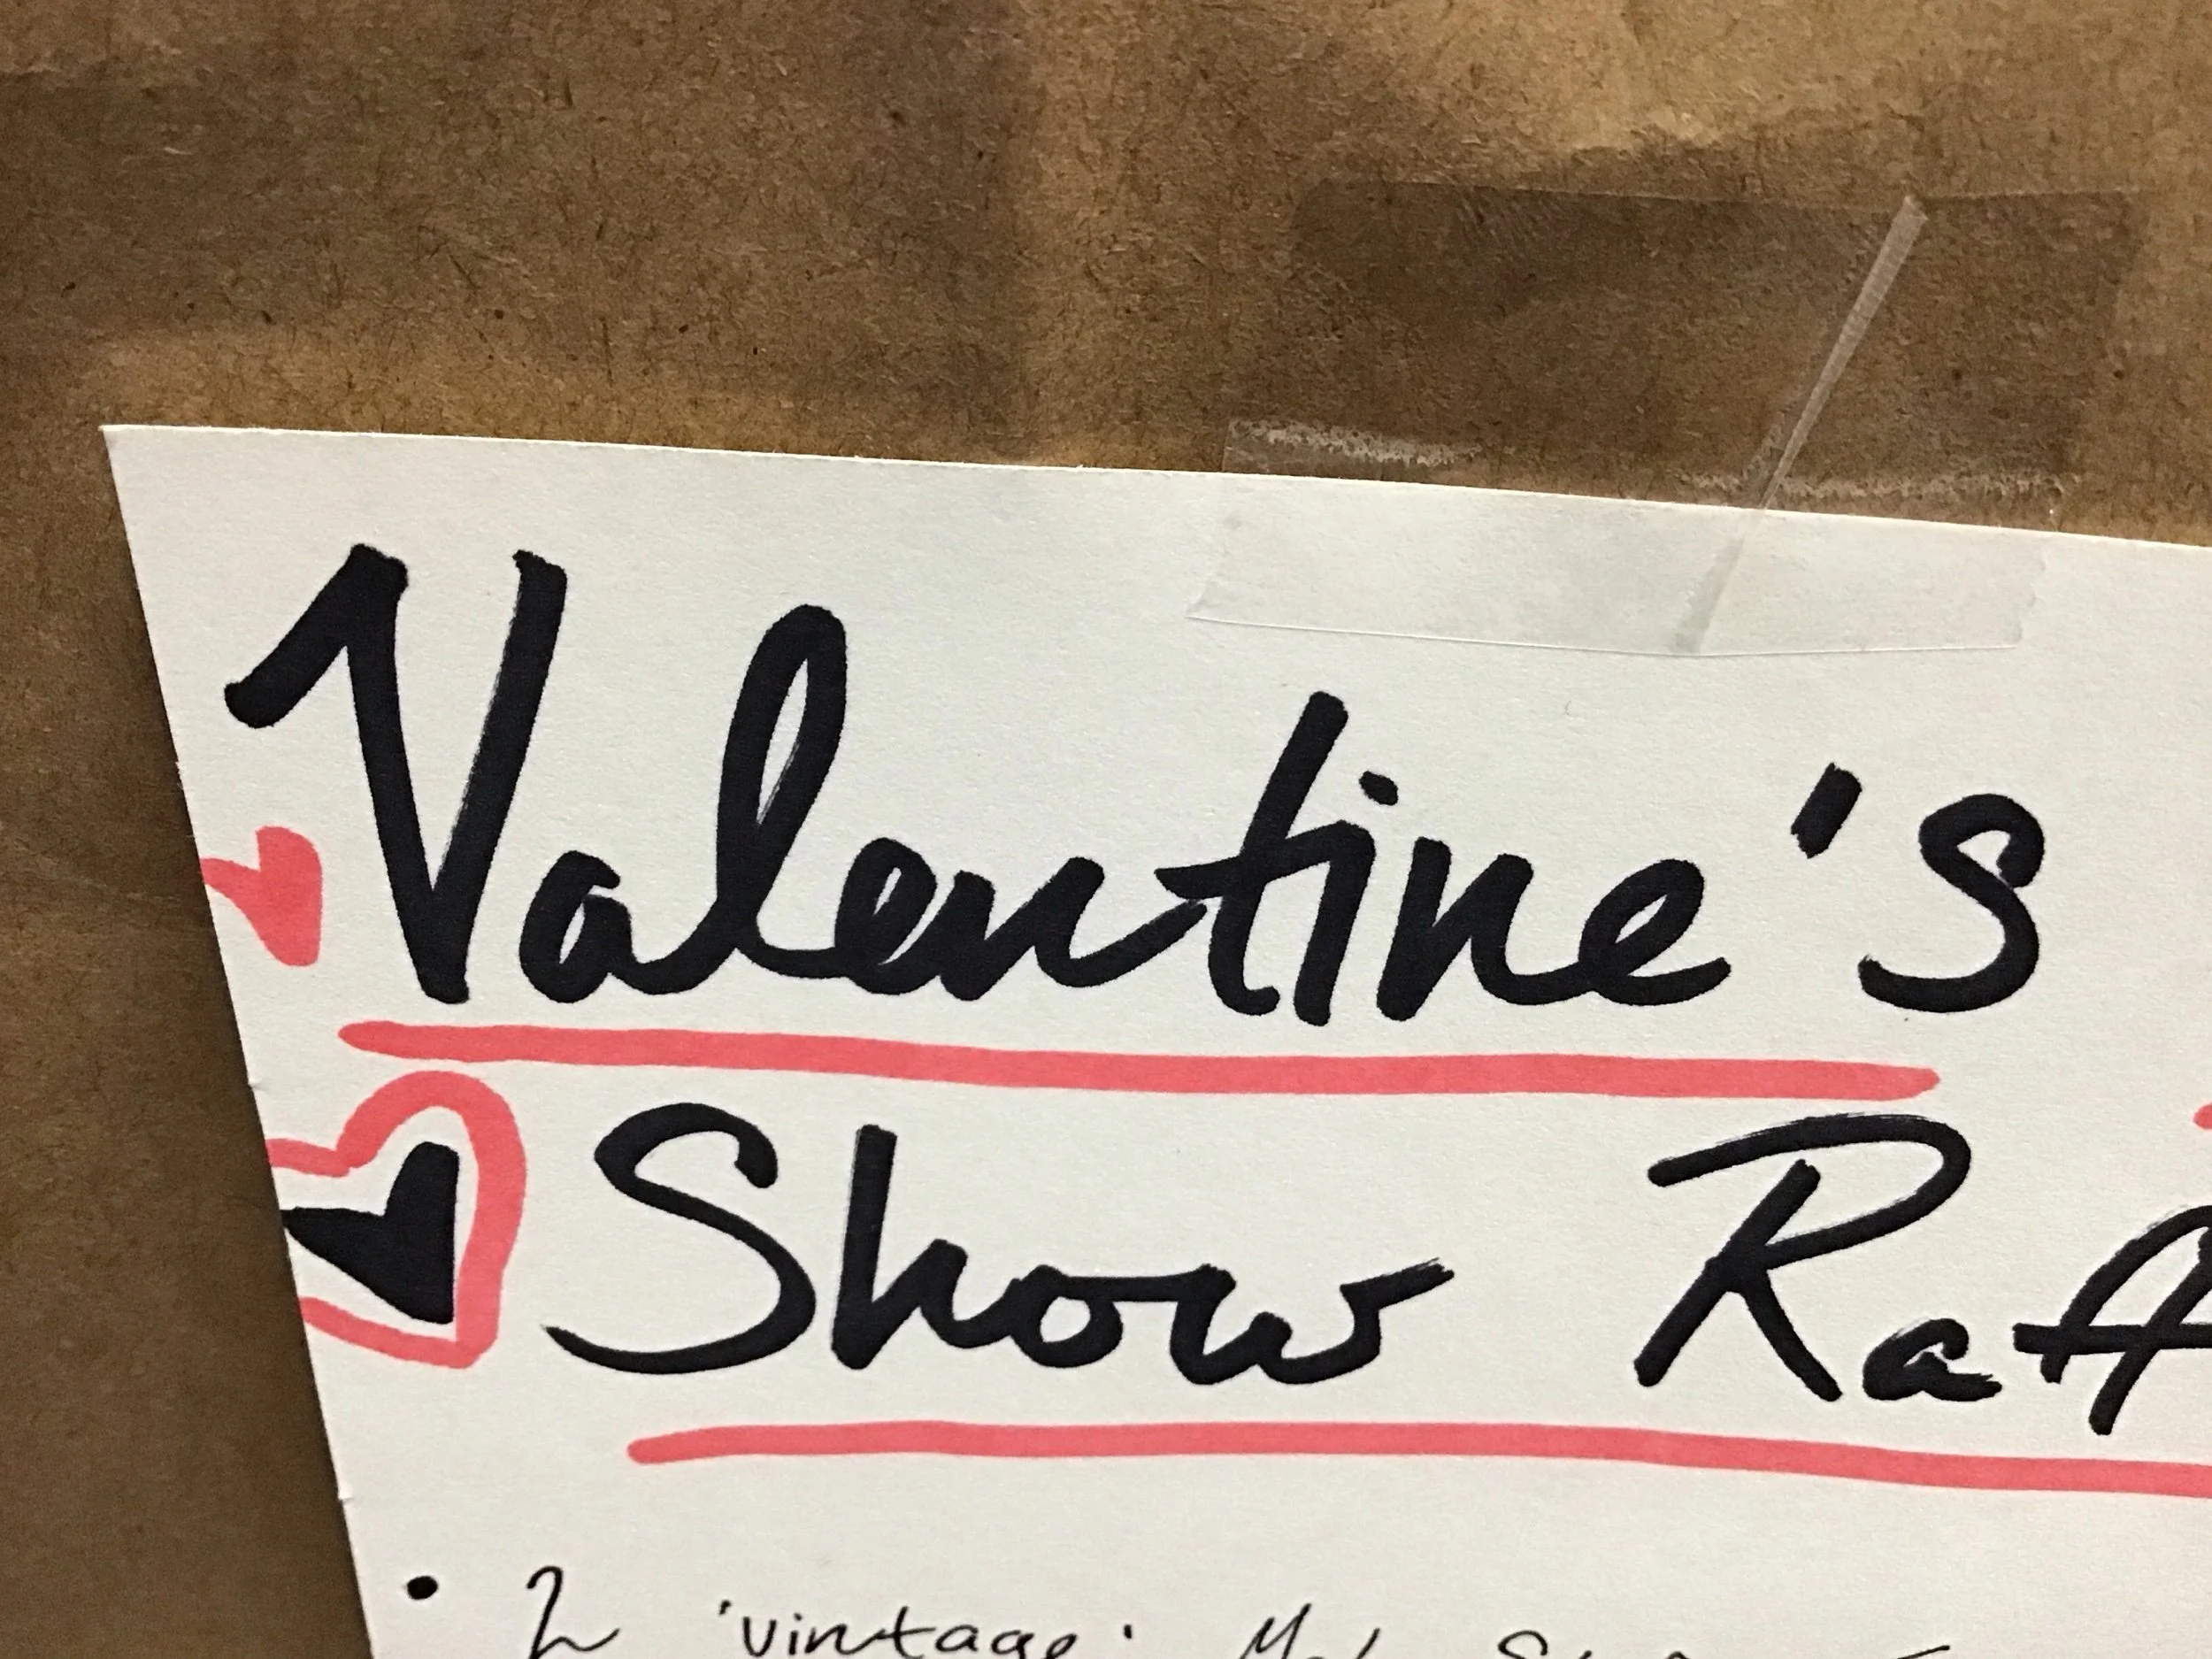 Valentine's
Show Raff
• 2 'vintage'